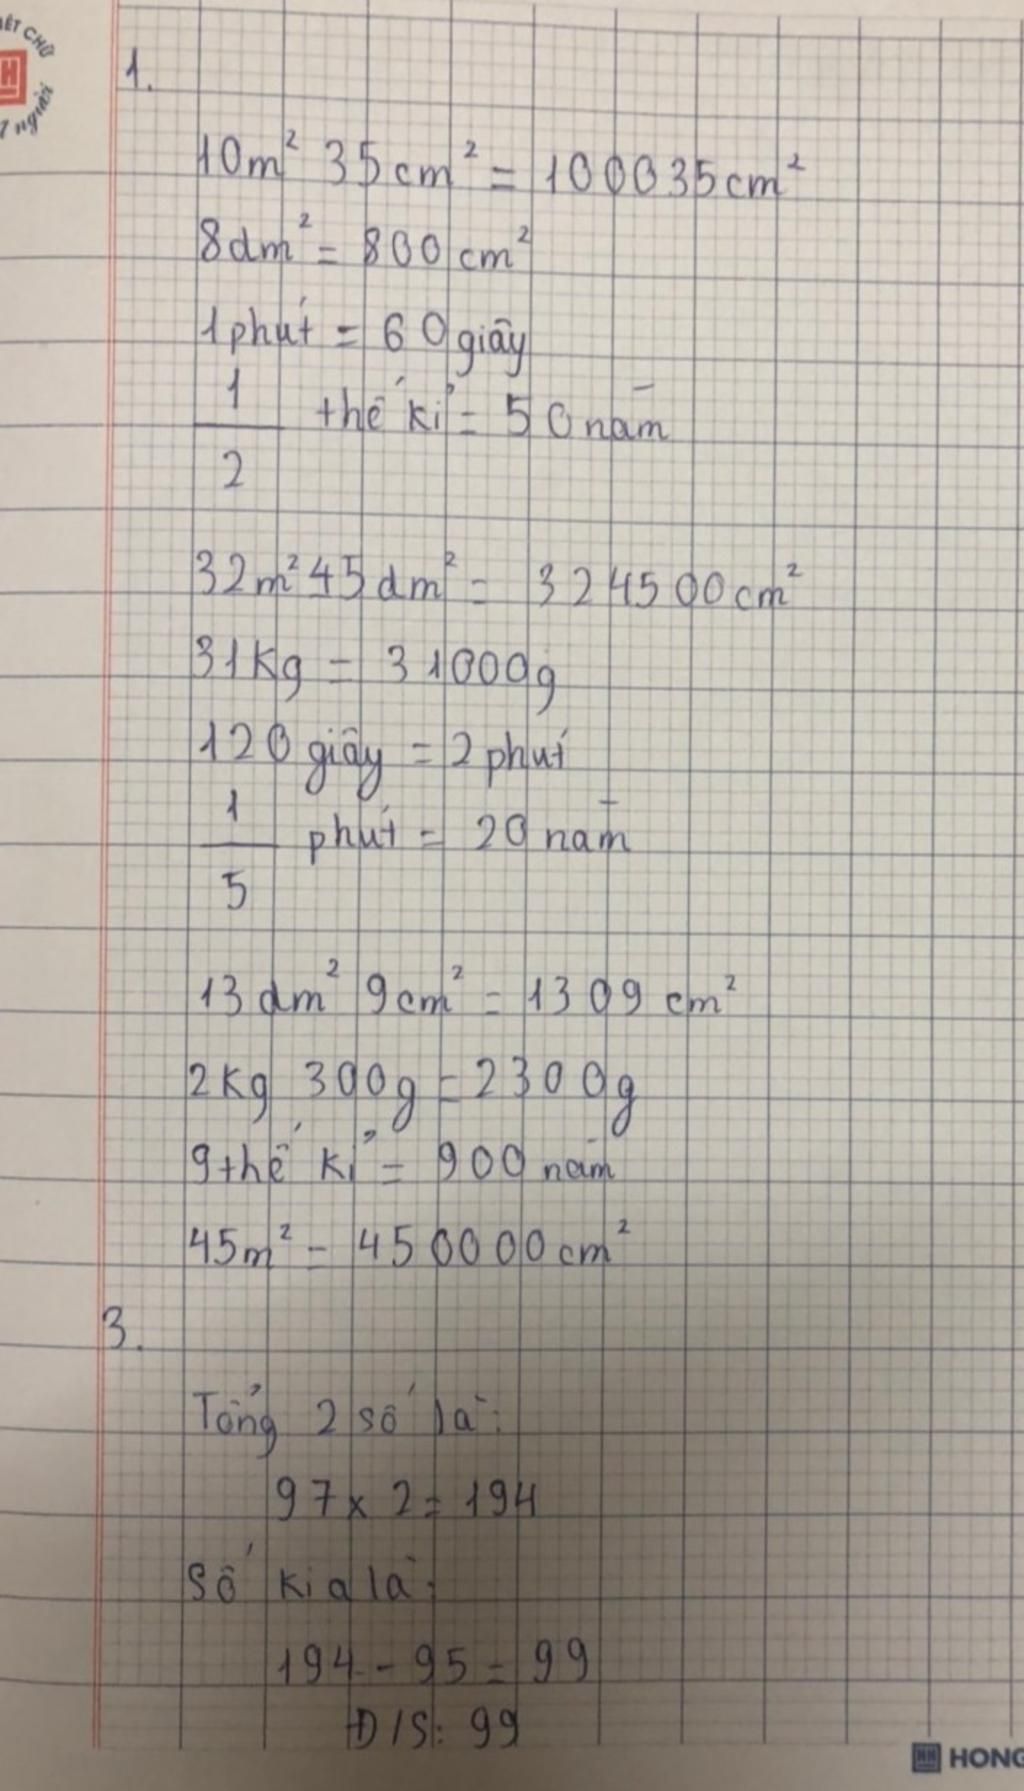 ẾT CHỮ
H
người
1.
10m² 35cm² = 100035cm²
8dm² = 800cm²
1 phút = 60 giây
1/2 thế kỉ = 50 năm
32m² 45dm² = 324500cm²
31Kg = 31000g
120 giây = 2 phút
1/5 phút = 20 năm
13dm² 9cm² = 1309 cm²
2Kg 300g = 2300g
9 thế kỉ = 900 năm
45m² = 450000cm²
3.
Tổng 2 số là:
97 x 2 = 194
Số kia là:
194 - 95 = 99
Đ/S: 99
HH HONG